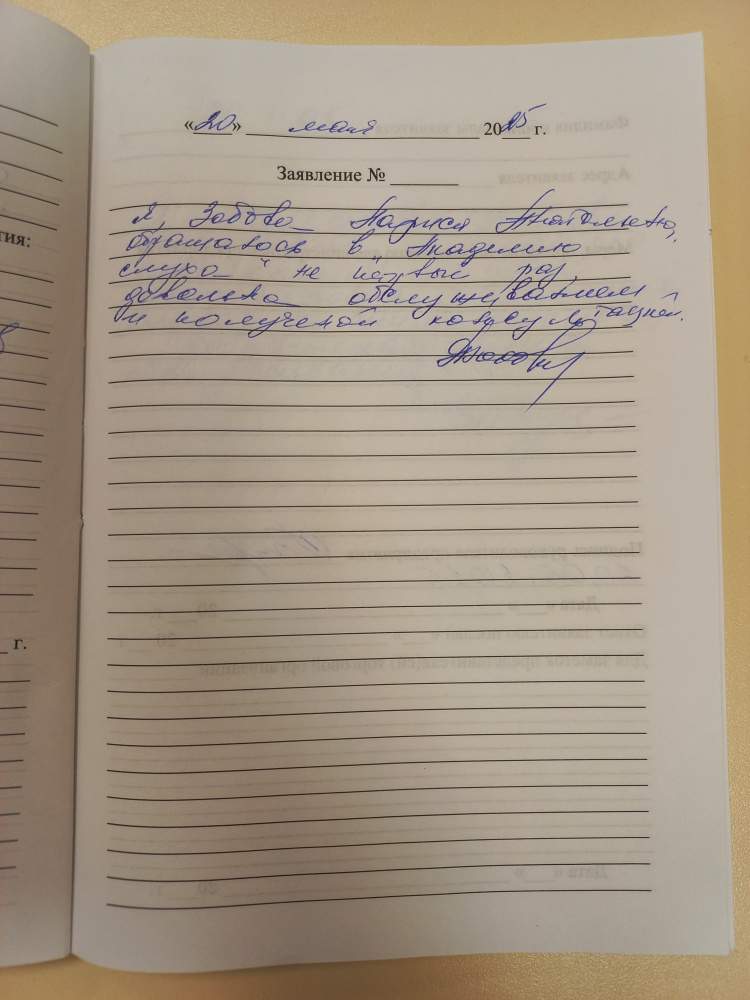 «20» мая 2025 г.
Заявление № ______
Я, Зобова Лариса Анатольевна,
обращаюсь в "Академию
слуха" не первый раз,
довольна обслуживанием
и полученой консультацией.
тия:
г.